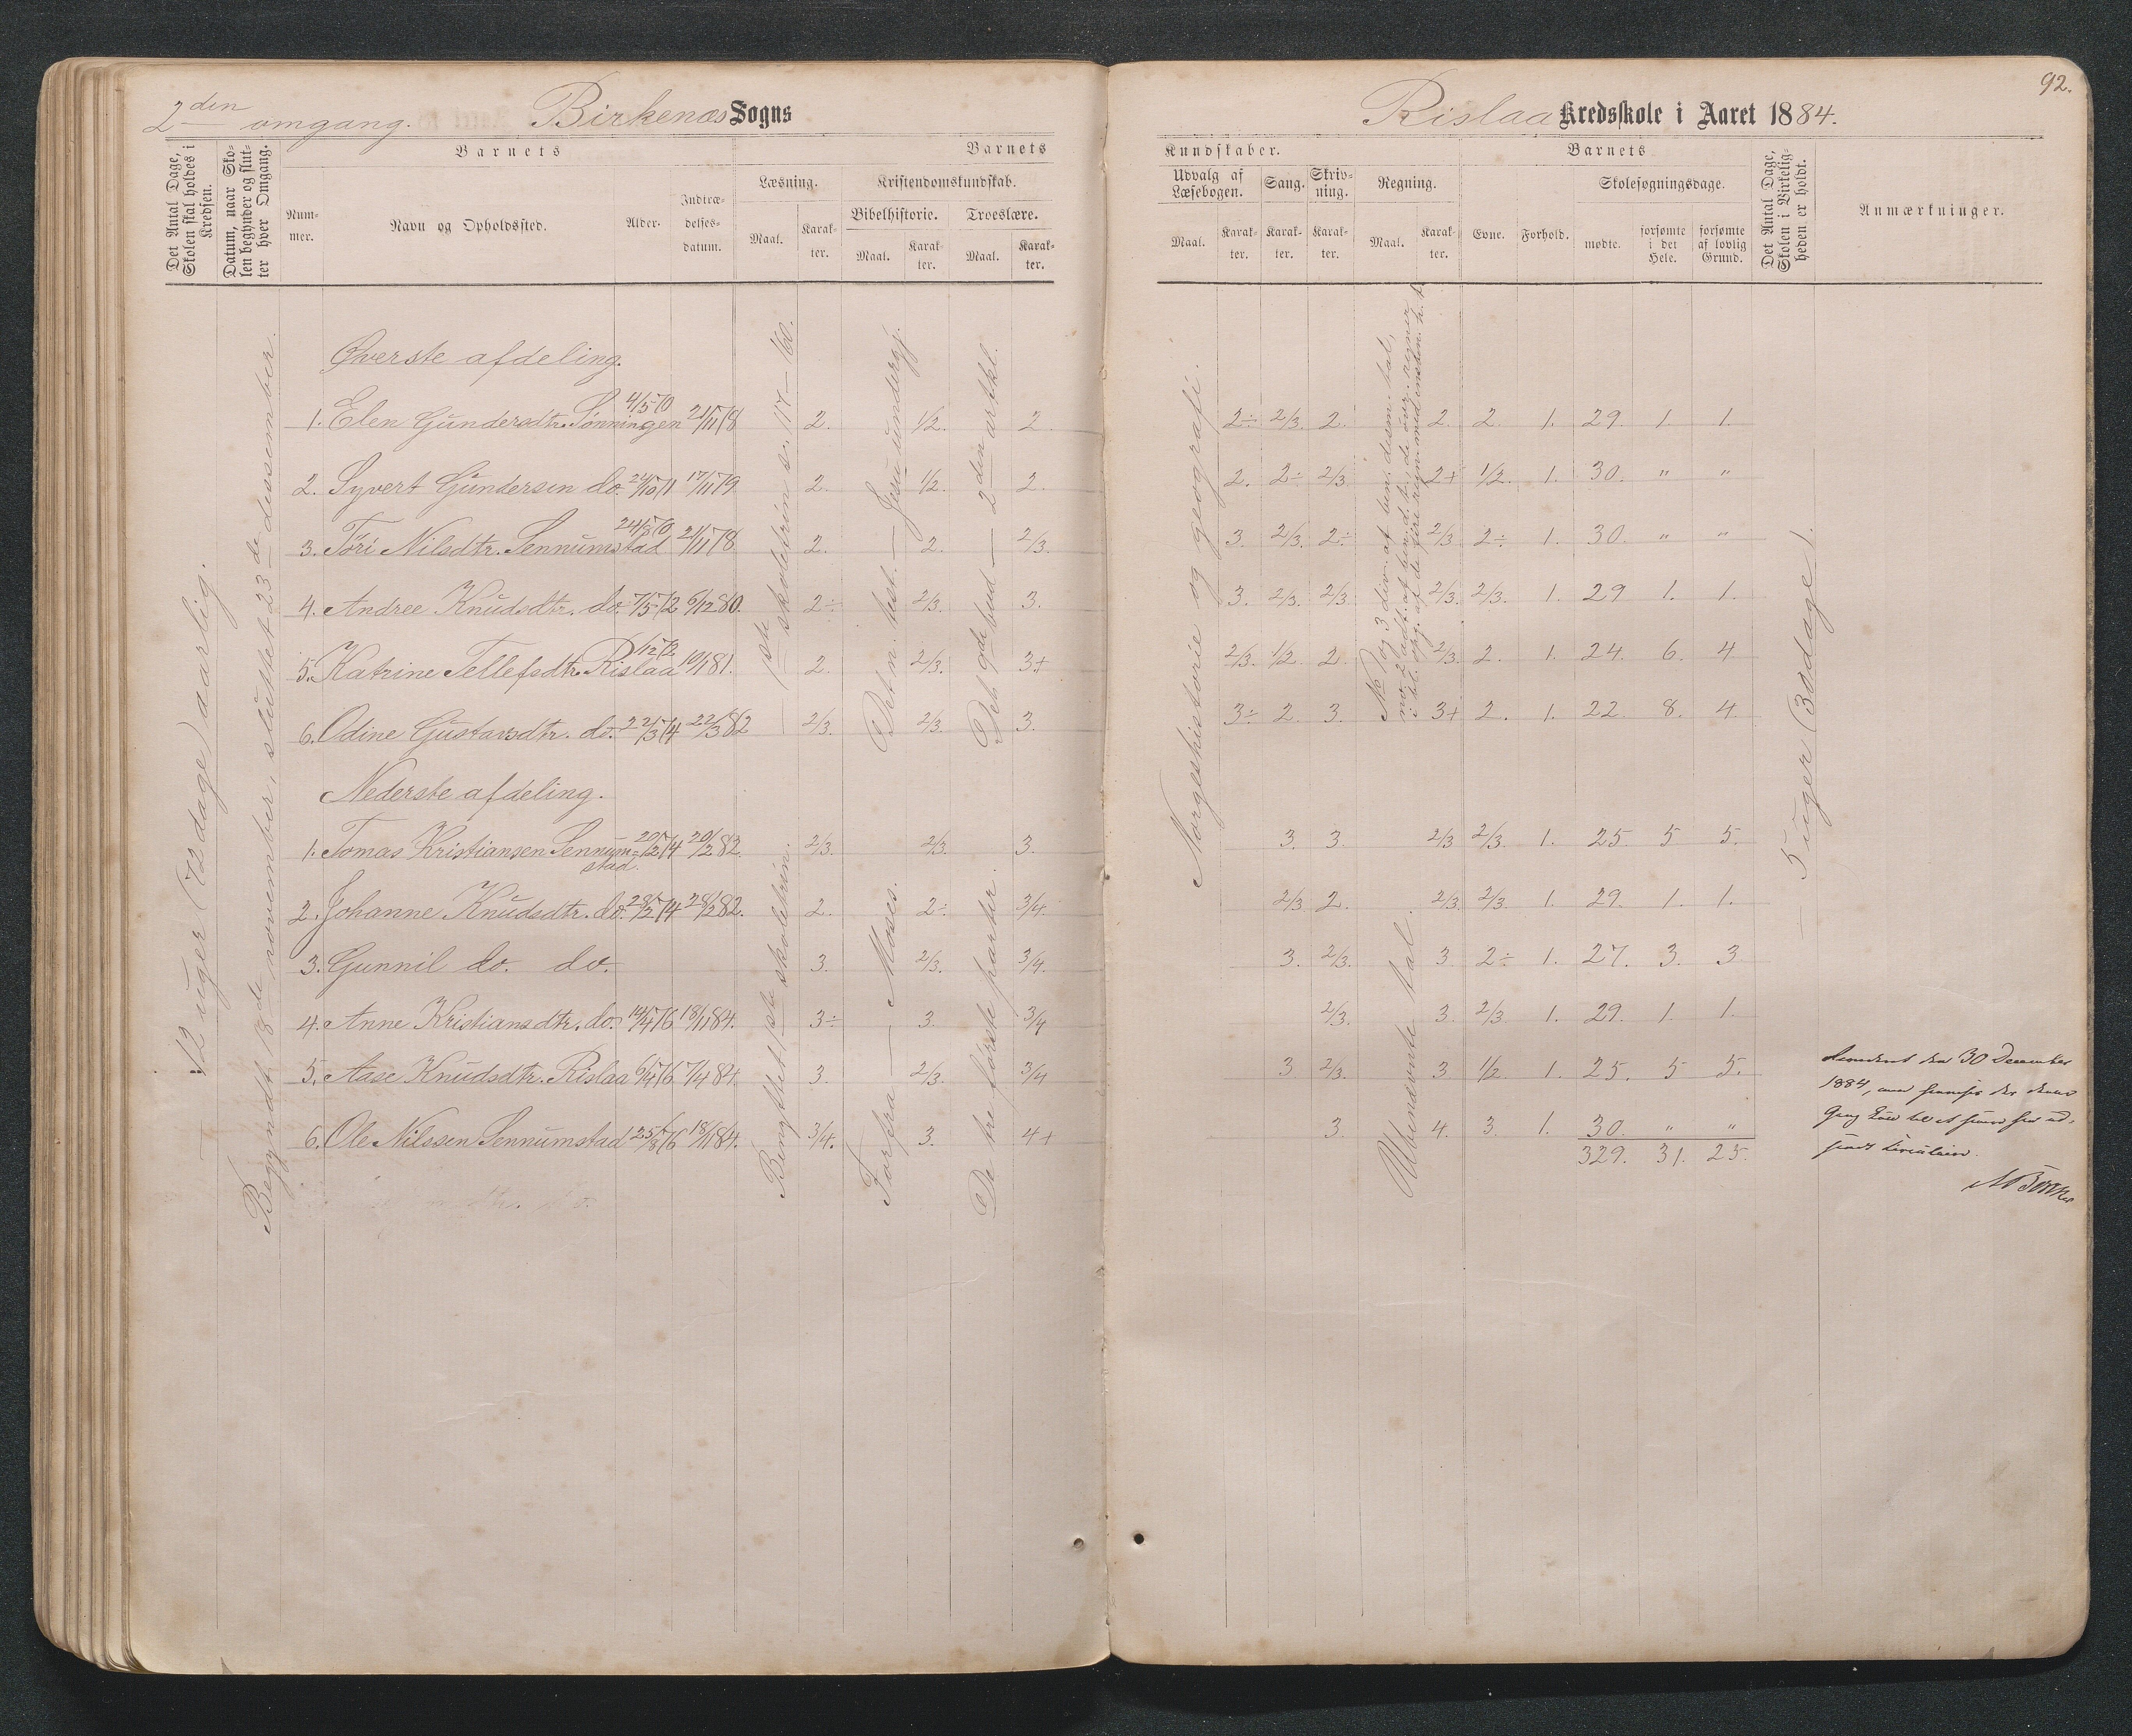 92.
2den omgang. Birkenæs Sogns
Rislaa Kredsskole i Aaret 1884.
Det Antal Dage, Skolen skal holdes i Kredsen.
Datum, naar Skolen begynder og slutter hver Omgang.
Barnets
Nummer.
Navn og Opholdssted.
Alder.
Indtrædelsesdatum.
Barnets
Læsning.
Maal.
Karakter.
Kristendomskundskab.
Bibelhistorie.
Maal.
Karakter.
Troeslære.
Maal.
Karakter.
Kundskaber.
Udvalg af Læsebogen.
Maal.
Karakter.
Sang.
Karakter.
Skrivning.
Karakter.
Regning.
Maal.
Karakter.
Barnets
Evne.
Forhold.
Skolesøgningsdage.
mødte.
forsømte i det Hele.
forsømte af lovlig Grund.
Det Antal Dage, Skolen i Virkeligheden er holdt.
Anmærkninger.
12 uger (72 dage) aarlig.
Begyndt 18de november, sluttet 23de desember.
1ste skoletrin s. 117–160.
Det n. test. — Jesu undergj.
Det 9de bud — 2den artkl.
Norgeshistorie og geografi.
5 uger (30 dage).
Øverste afdeling.
1. Elen Gundersdtr. Tønningen 4/5 70 21/11 78 2. 1/2. 2. 2÷ 2/3. 2. 2. 2. 1. 29. 1. 1.
2. Syvert Gundersen do. 24/10 71 17/11 79. 2. 1/2. 2. 2. 2÷ 2/3 2+ 1/2. 1. 30. " "
3. Töri Nilsdtr. Sennumstad 24/8 70 21/11 78 2. 2. 2/3. 3. 2/3. 2÷ 2/3 2÷ 1. 30. " "
4. Andree Knudsdtr. do. 7/5 72 6/12 80. 2÷ 2/3. 3. 3. 2/3. 2/3 2/3. 2/3. 1. 29 1. 1.
5. Katrine Tellefsdtr. Rislaa 1/12 72 10/1 81. 2. 2/3. 3+ 2/3. 1/2. 2. 2/3. 2. 1. 24. 6. 4
6. Odine Gustavsdtr. do. 22/3 74 22/3 82 2/3. 2/3. 3. 3÷ 2. 3. 3+ 2. 1. 22. 8. 4.
Nederste afdeling.
Bengttet 1ste skoletrin.
Forfra — Moses.
De tre første parter.
Ubenævnte tal.
1. Tomas Kristiansen Sennumstad. 20/2 74 20/2 82. 2/3. 2/3. 3. 3. 3. 2/3 2/3. 1. 25. 5 5.
2. Johanne Knudsdtr. do. 28/2 74 28/2 82. 2. 2÷ 3/4. 2/3 2. 2/3 2/3. 1. 29. 1. 1.
3. Gunnil do. do. 3. 2/3. 3/4. 3. 2/3. 3. 2÷ 1. 27. 3. 3
4. Anne Kristiansdtr. do. 14/4 76 18/11 84. 3÷ 3. 3/4 2/3. 3. 2/3 1. 29. 1. 1.
5. Aase Knudsdtr. Rislaa 6/4 76 7/4 84. 3. 2/3. 3/4 3 2/3. 3. 1/2 1. 25. 5 5.
6. Ole Nilssen Sennumstad 25/8 76 18/11 84. 3/4. 3. 4+ 3. 4. 3. 1. 30. " "
329. 31. 25.
den 30 December
1884,